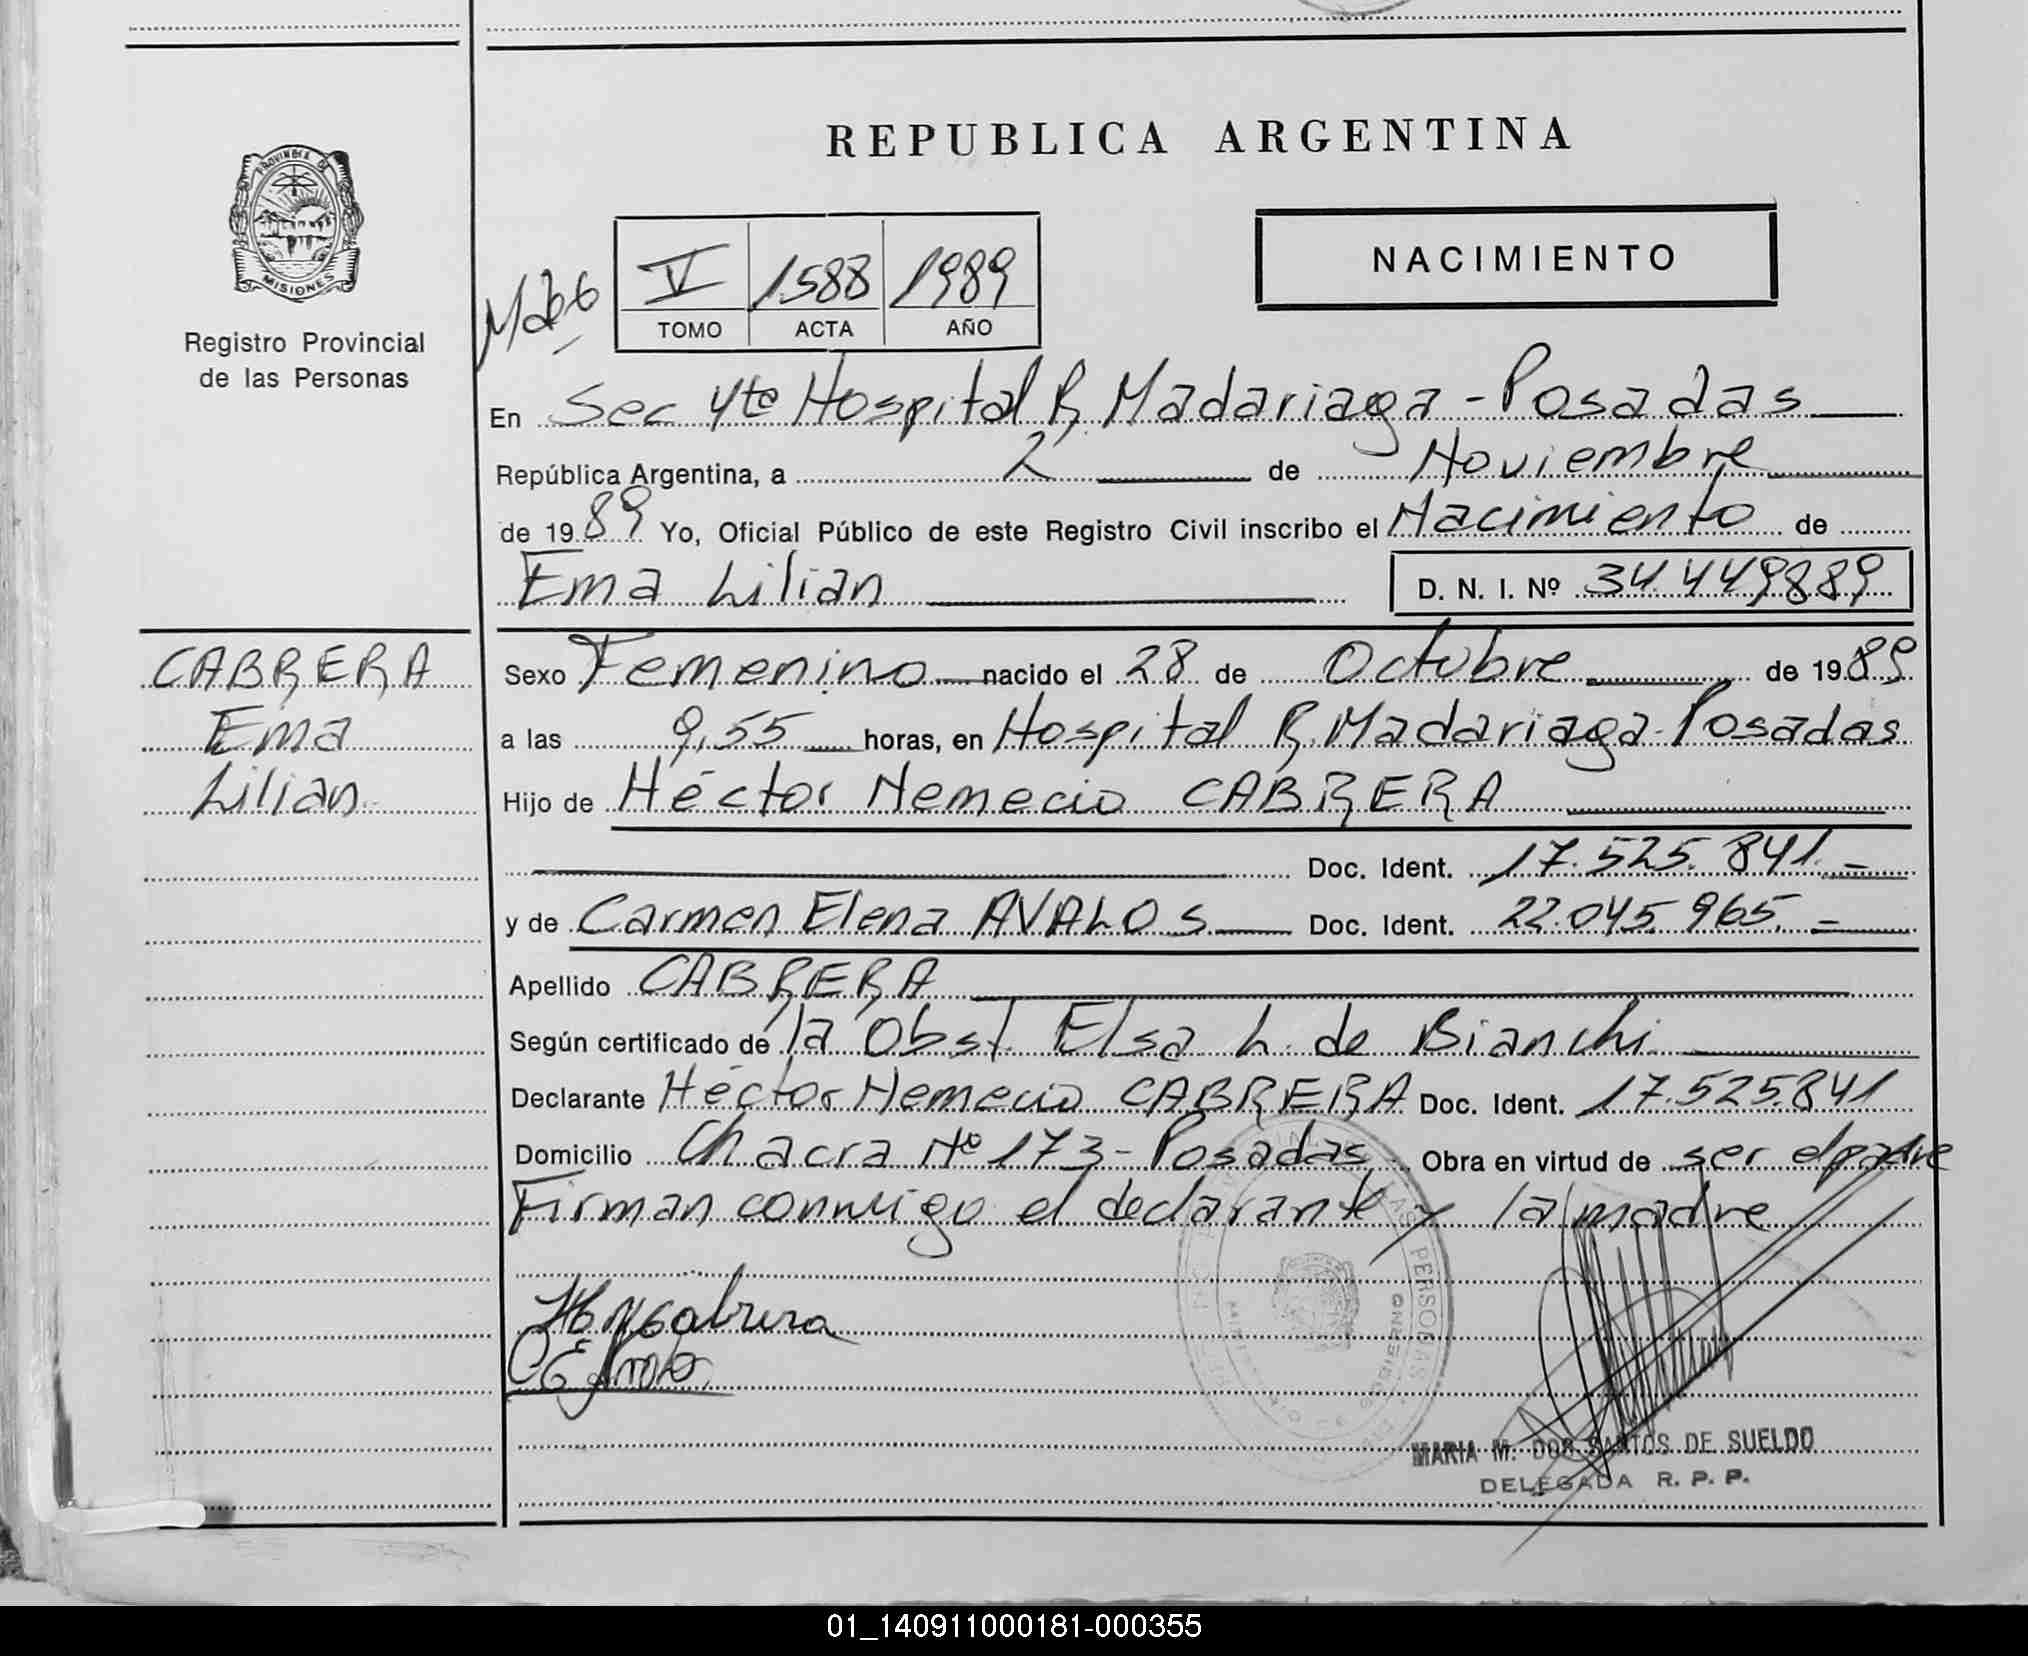 REPUBLICA ARGENTINA
PROVINCIA DE
MISIONES
Registro Provincial
de las Personas
NACIMIENTO
V 1588 1989
TOMO ACTA AÑO
En Sec 4te Hospital R. Madariaga - Posadas
República Argentina, a 2 de Noviembre
de 1989 Yo, Oficial Público de este Registro Civil inscribo el Nacimiento de
Ema Lilian D. N. I. Nº 34.449889
CABRERA
Ema
Lilian.
Sexo Femenino nacido el 28 de Octubre de 1989
a las 9,55 horas, en Hospital R. Madariaga - Posadas
Hijo de Héctor Nemecio CABRERA
Doc. Ident. 17.525.841.-
y de Carmen Elena AVALOS Doc. Ident. 22.045.965.-
Apellido CABRERA
Según certificado de la Obst. Elsa L. de Bianchi
Declarante Héctor Nemecio CABRERA Doc. Ident. 17.525.841
Domicilio Chacra Nº 173 - Posadas Obra en virtud de ser el padre
Firman conmigo el declarante y la madre
MARIA M. DOS SANTOS DE SUELDO
DELEGADA R. P. P.
01_140911000181-000355